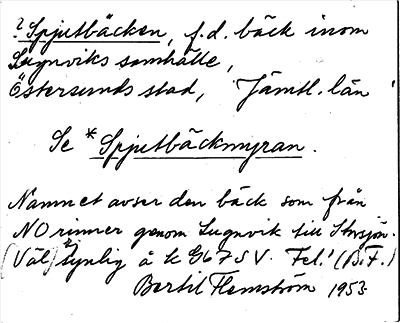 ? Spjutbäcken, f.d. bäck inom
Lugnviks samhälle,
Östersunds stad, Jämtl. län
Se *Spjutbäckmyran.
Namnet avser den bäck som från
NO rinner genom Lugnvik till Storsjön.
(Väl synlig å k 9h67SV. Fel! (B.F.)
Bertil Flemström 1953